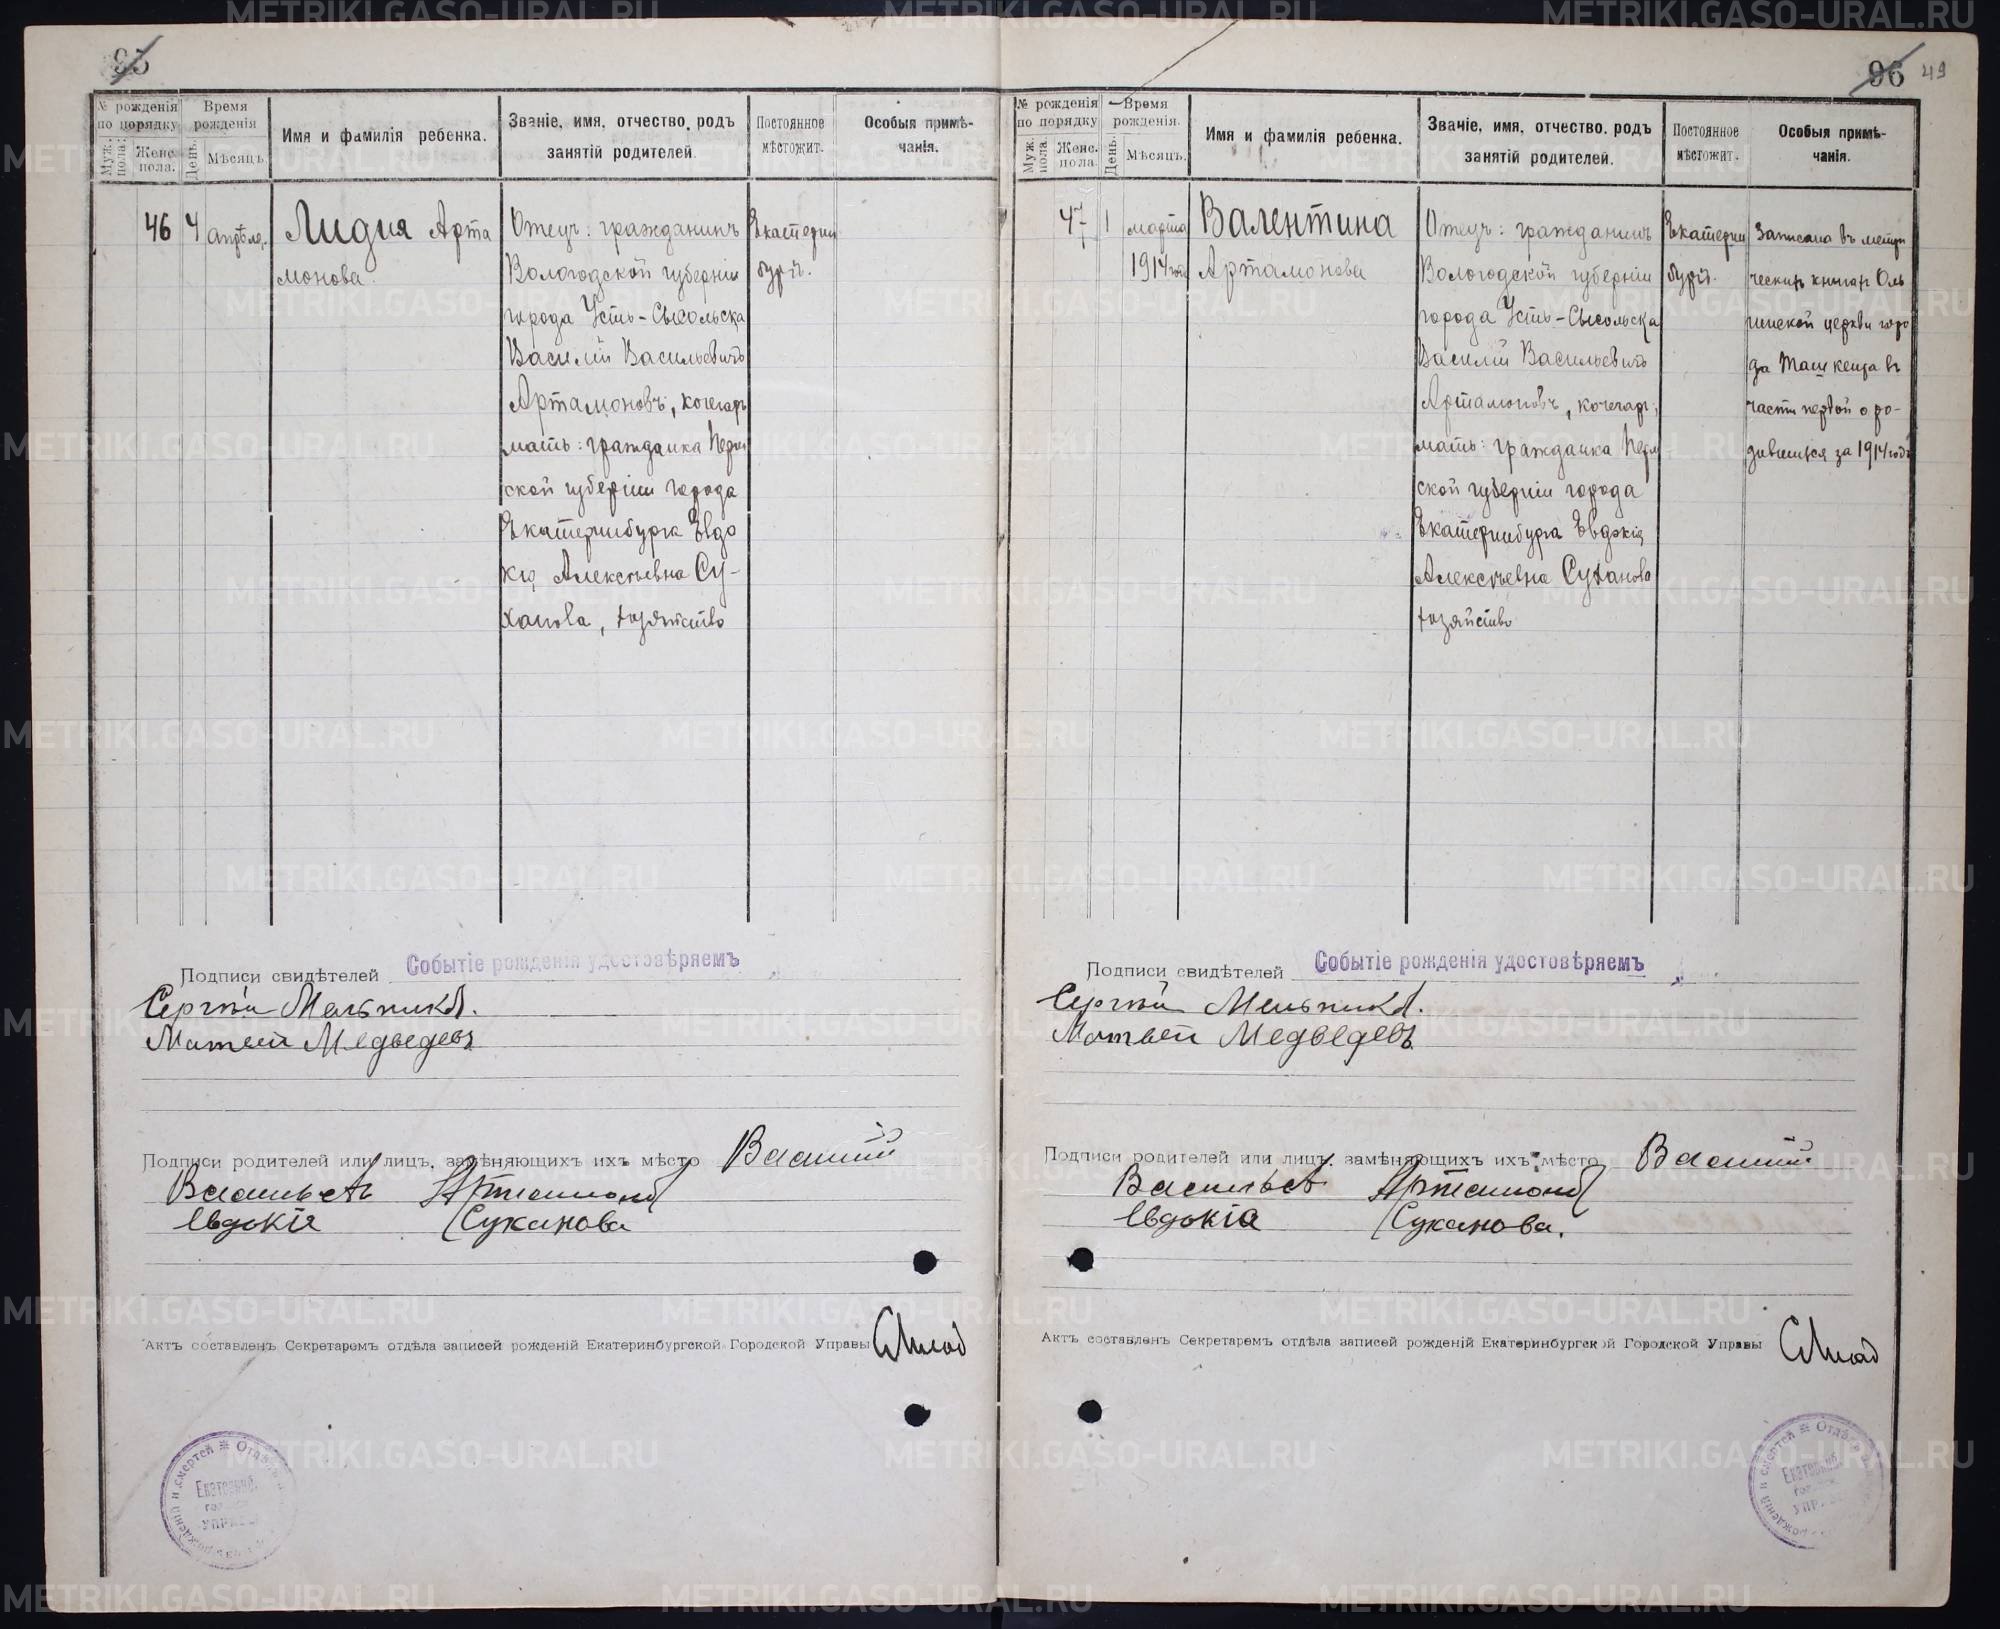 95
№ рожденія по порядку
Муж. пола.
Женс. пола.
Время рожденія
День.
Мѣсяцъ.
Имя и фамилія ребенка.
Званіе, имя, отчество, родъ
занятій родителей.
Постоянное
мѣстожит.
Особыя примѣ-
чанія.
46 4 Апрѣля.
Лидия Арта
монова.
Отецъ: гражданинъ
Вологодской губерніи
города Усть-Сысольска
Василій Васильевичъ
Артамоновъ, кочегаръ
мать: гражданка Перм
ской губерніи города
Екатеринбурга Евдо
кія Алексѣевна Су-
ханова, хозяйство
Екатерин
бургъ.
Подписи свидѣтелей Событіе рожденія удостовѣряемъ
Сергѣй Мельников.
Матвей Медведевъ
Подписи родителей или лицъ, замѣняющихъ ихъ мѣсто Василий
Васильев Артамонов
Евдокія Суханова
Актъ составленъ Секретаремъ отдѣла записей рожденій Екатеринбургской Городской Управы
96 49
№ рожденія по порядку
Муж. пола.
Женс. пола.
Время рожденія.
День.
Мѣсяцъ.
Имя и фамилія ребенка.
Званіе, имя, отчество, родъ
занятій родителей.
Постоянное
мѣстожит.
Особыя примѣ-
чанія.
47 1 марта
1914 года
Валентина
Артамонова
Отецъ: гражданинъ
Вологодской губерніи
города Усть-Сысольска
Василій Васильевичъ
Артамоновъ, кочегаръ,
мать: гражданка Перм
ской губерніи города
Екатеринбурга Евдокія
Алексѣевна Суханова
хозяйство
Екатерин
бургъ.
Записана въ метри
ческихъ книгахъ Оль
гинской церкви горо
да Ташкента въ
части первой о ро-
дившихся за 1914 годъ
Подписи свидѣтелей Событіе рожденія удостовѣряемъ
Сергѣй Мельников.
Матвей Медведевъ
Подписи родителей или лицъ, замѣняющихъ ихъ мѣсто Василий
Васильев Артамонов
Евдокія Суханова.
Актъ составленъ Секретаремъ отдѣла записей рожденій Екатеринбургской Городской Управы
METRIKI.GASO-URAL.RU